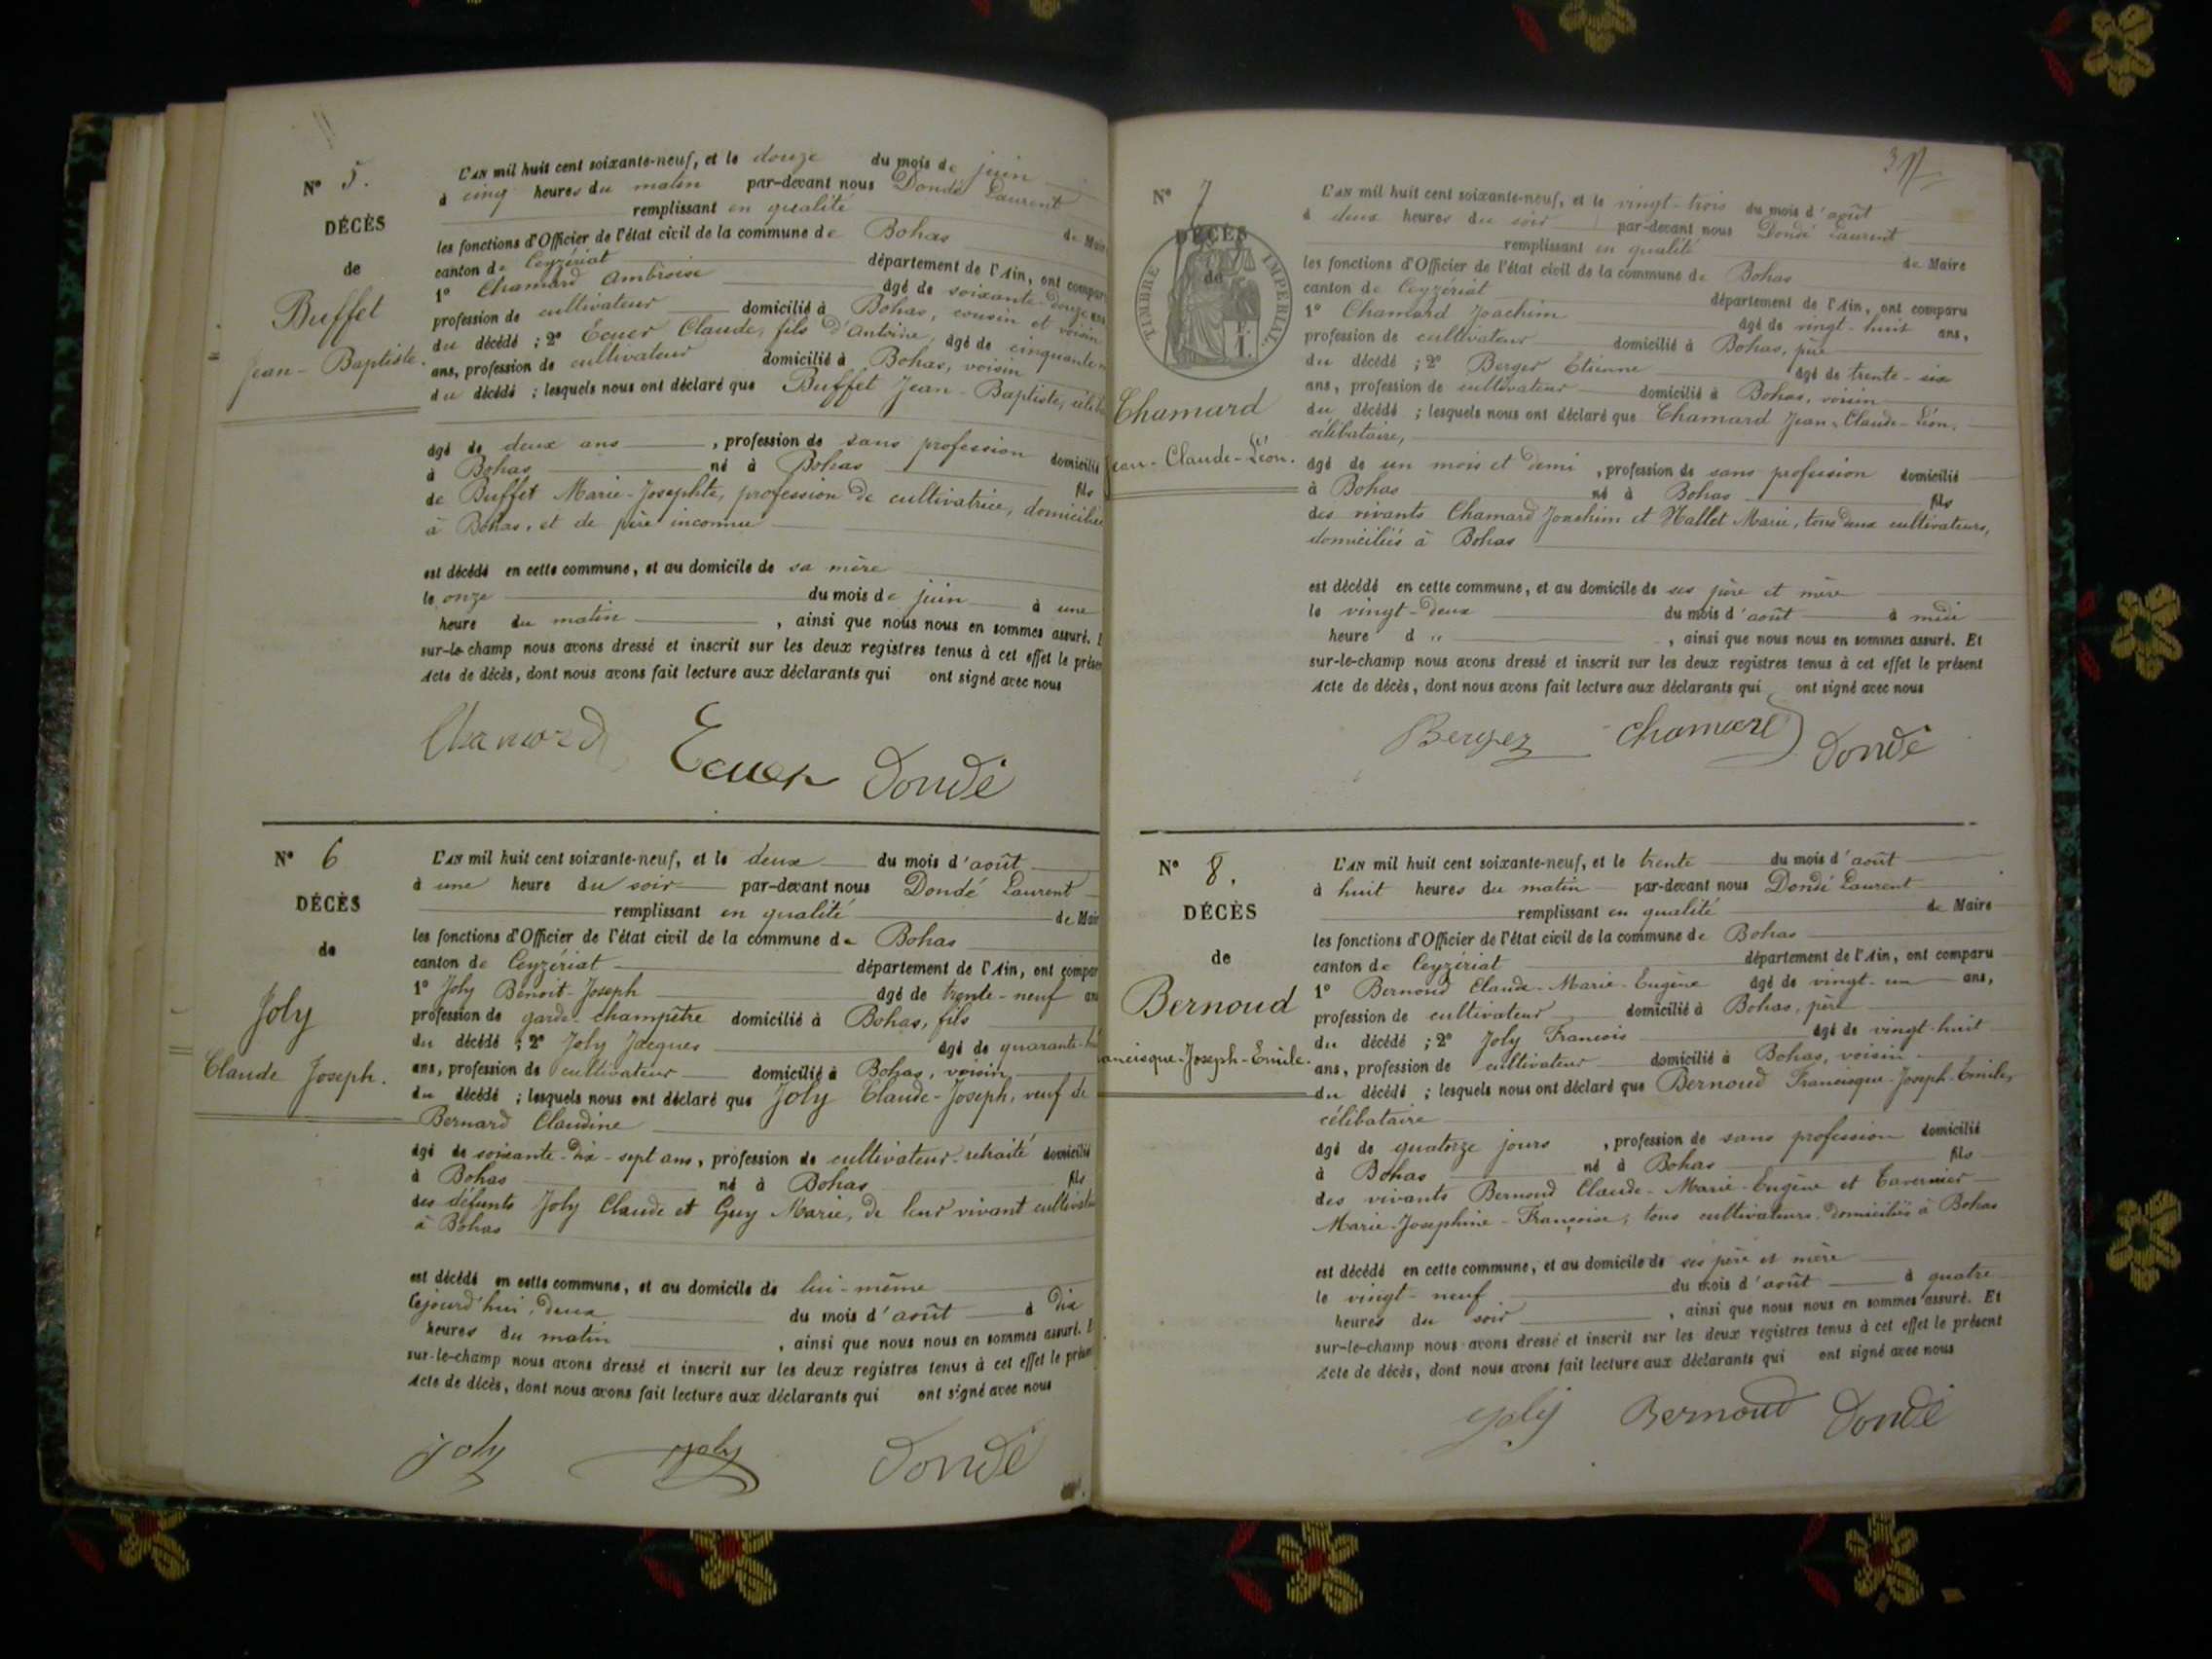 N° 5.
DÉCÈS
de
Buffet
Jean-Baptiste.
L'AN mil huit cent soixante-neuf, et le douze du mois de juin
à cinq heures du matin par-devant nous Dondé Laurent
remplissant en qualité de Maire
les fonctions d'Officier de l'état civil de la commune de Bohas
canton de Ceyzériat département de l'Ain, ont compar
1° Chamard Ambroise âgé de soixante-douze ans
profession de cultivateur domicilié à Bohas, cousin et voisin
du décédé ; 2° Ecuer Claude, fils d'Antoine, âgé de cinquante
ans, profession de cultivateur domicilié à Bohas, voisin
du décédé ; lesquels nous ont déclaré que Buffet Jean-Baptiste, céliba
âgé de deux ans, profession de sans profession domicilié
à Bohas né à Bohas fils
de Buffet Marie-Josephte, profession de cultivatrice, domiciliée
à Bohas, et de père inconnu
est décédé en cette commune, et au domicile de sa mère
le onze du mois de juin à une
heure du matin, ainsi que nous nous en sommes assuré. E
sur-le-champ nous avons dressé et inscrit sur les deux registres tenus à cet effet le présen
Acte de décès, dont nous avons fait lecture aux déclarants qui ont signé avec nous
Chamard Ecuer Dondé
N° 6
DÉCÈS
de
Joly
Claude Joseph.
L'AN mil huit cent soixante-neuf, et le deux du mois d'août
à une heure du soir par-devant nous Dondé Laurent
remplissant en qualité de Mair
les fonctions d'Officier de l'état civil de la commune de Bohas
canton de Ceyzériat département de l'Ain, ont compar
1° Joly Benoit-Joseph âgé de trente-neuf an
profession de garde-champêtre domicilié à Bohas, fils
du décédé ; 2° Joly Jacques âgé de quarante-
ans, profession de cultivateur domicilié à Bohas, voisin
du décédé ; lesquels nous ont déclaré que Joly Claude-Joseph, veuf de
Bernard Claudine
âgé de soixante-dix-sept ans, profession de cultivateur-retraité domicilié
à Bohas né à Bohas fils
des défunts Joly Claude et Guy Marie, de leur vivant cultivateu
à Bohas
est décédé en cette commune, et au domicile de lui-même
cejourd'hui, deux du mois d'août à dix
heures du matin, ainsi que nous nous en sommes assuré. E
sur-le-champ nous avons dressé et inscrit sur les deux registres tenus à cet effet le présen
Acte de décès, dont nous avons fait lecture aux déclarants qui ont signé avec nous
Joly Joly Dondé
N° 7
DÉCÈS
de
TIMBRE IMPÉRIAL
Chamard
Jean-Claude-Léon.
L'AN mil huit cent soixante-neuf, et le vingt-trois du mois d'août
à deux heures du soir par-devant nous Dondé Laurent
remplissant en qualité de Maire
les fonctions d'Officier de l'état civil de la commune de Bohas
canton de Ceyzériat département de l'Ain, ont comparu
1° Chamard Joachim âgé de vingt-huit ans,
profession de cultivateur domicilié à Bohas, père
du décédé ; 2° Berger Etienne âgé de trente-six
ans, profession de cultivateur domicilié à Bohas, voisin
du décédé ; lesquels nous ont déclaré que Chamard Jean-Claude-Léon,
célibataire,
âgé de un mois et demi, profession de sans profession domicilié
à Bohas né à Bohas fils
des vivants Chamard Joachim et Hallet Marie, tous deux cultivateurs,
domiciliés à Bohas
est décédé en cette commune, et au domicile de ses père et mère
le vingt-deux du mois d'août à midi
heure d ", ainsi que nous nous en sommes assuré. Et
sur-le-champ nous avons dressé et inscrit sur les deux registres tenus à cet effet le présent
Acte de décès, dont nous avons fait lecture aux déclarants qui ont signé avec nous
Berger Chamard Dondé
N° 8.
DÉCÈS
de
Bernoud
ancisque-Joseph-Emile.
L'AN mil huit cent soixante-neuf, et le trente du mois d'août
à huit heures du matin par-devant nous Dondé Laurent
remplissant en qualité de Maire
les fonctions d'Officier de l'état civil de la commune de Bohas
canton de Ceyzériat département de l'Ain, ont comparu
1° Bernoud Claude-Marie-Eugène âgé de vingt-un ans,
profession de cultivateur domicilié à Bohas, père
du décédé ; 2° Joly Francois âgé de vingt-huit
ans, profession de cultivateur domicilié à Bohas, voisin
du décédé ; lesquels nous ont déclaré que Bernoud Francisque-Joseph-Emile,
célibataire
âgé de quatorze jours, profession de sans profession domicilié
à Bohas né à Bohas fils
des vivants Bernoud Claude-Marie-Eugène et Tavernier
Marie-Josephine-Françoise, tous cultivateurs domiciliés à Bohas
est décédé en cette commune, et au domicile de ses père et mère
le vingt-neuf du mois d'août à quatre
heures du soir, ainsi que nous nous en sommes assuré. Et
sur-le-champ nous avons dressé et inscrit sur les deux registres tenus à cet effet le présent
Acte de décès, dont nous avons fait lecture aux déclarants qui ont signé avec nous
Joly Bernoud Dondé